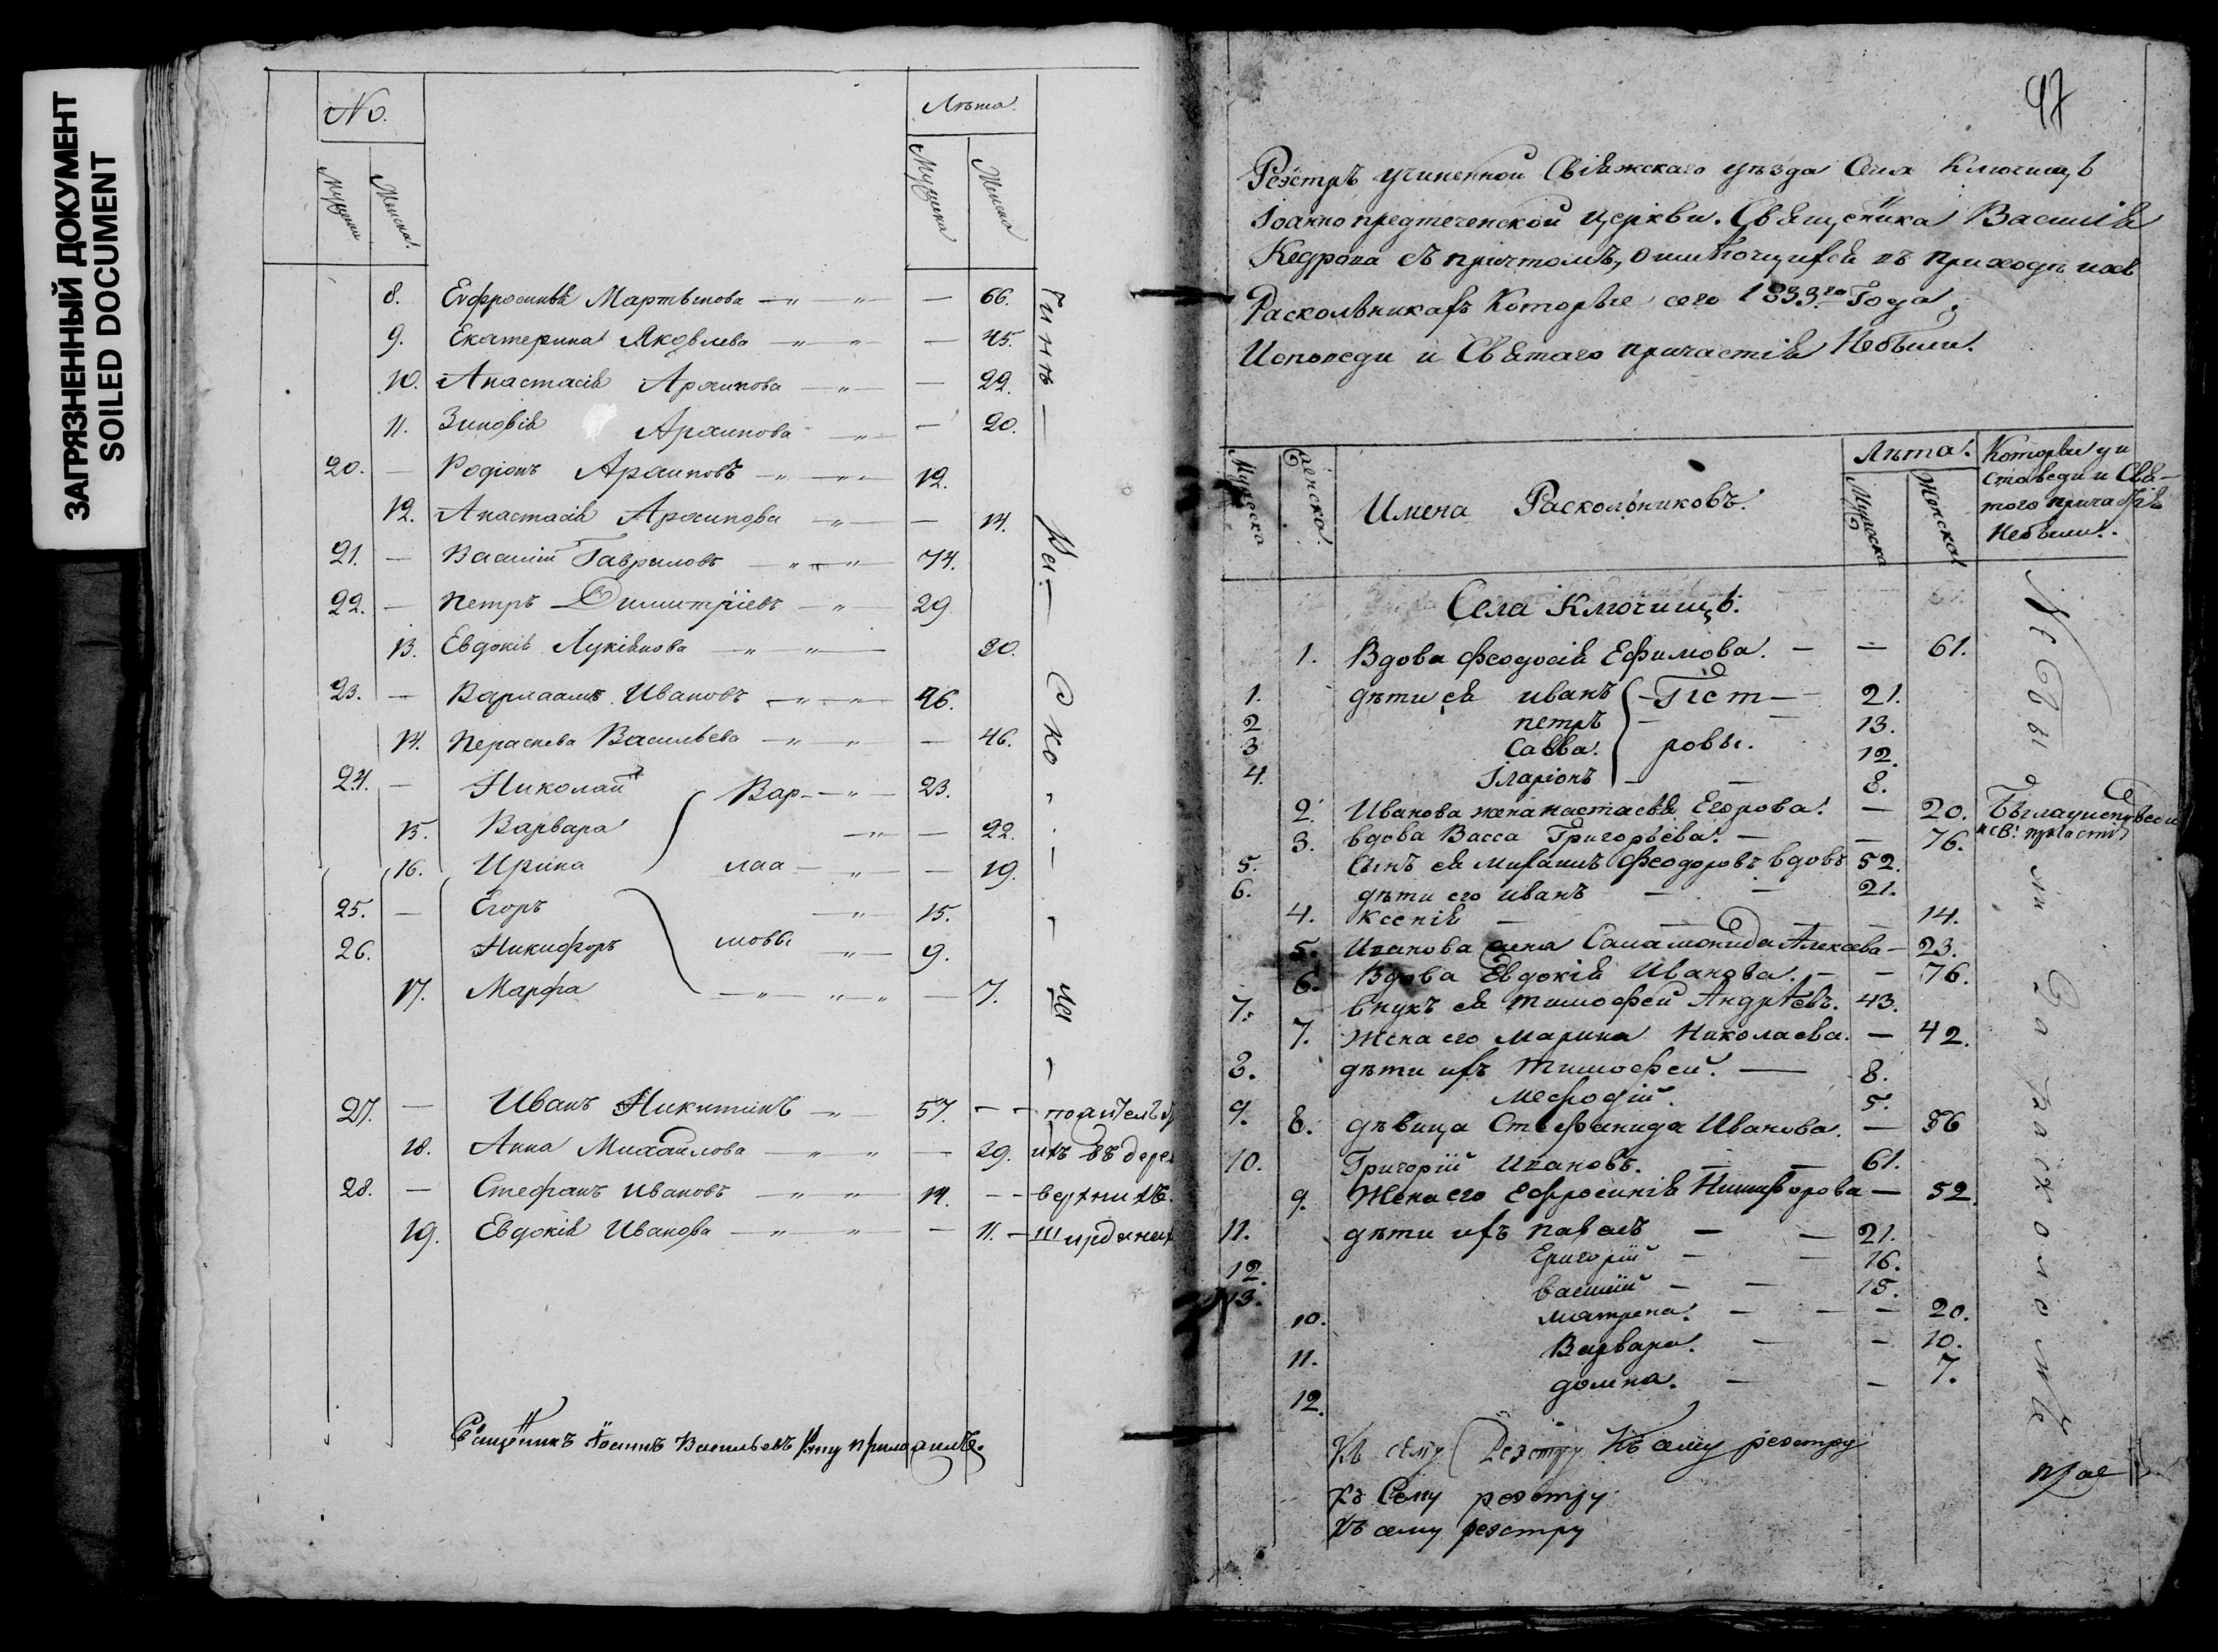 ЗАГРЯЗНЕННЫЙ ДОКУМЕНТ
SOILED DOCUMENT
No.
Лѣта.
Мужеска
Женска
8. Евфросинья Мартынова — 66.
9. Екатерина Яковлева — 45.
10. Анастасія Архипова — 22.
11. Зиновія Архипова — 20.
20. — Родіонъ Архиповъ — 12.
12. Анастасія Архипова — 14.
21. — Василій Гавриловъ — 74.
22. — Петръ Димитріевъ — 29
13. Евдокія Лукіянова — 30.
23. — Варлаамъ Ивановъ — 46.
14. Параскева Васильева — 46.
24. — Николай Вар- — 23.
15. Варвара — 22.
16. Ирина лаа — 19.
25. — Егоръ — 15.
26. Никифоръ мовы — 9.
17. Марфа — 7.
27. — Иванъ Никитинъ — 57. — —
18. Анна Михайлова — 29. ихъ въ дере
28. — Стефанъ Ивановъ — 14. — — верхнихъ.
19. Евдокія Иванова — 11. — Ширданах
Священникъ Іоаннъ Васильевъ руку приложилъ.
47
Реэстръ учиненной Свіяжскаго уѣзда Села Ключищъ
Іоаннопредтеченской церкви. Священника Василія
Кедрова съ причтомъ, о имѣющихся въ приходѣ ихъ
Раскольникахъ Которые сего 1833го Года,
Исповеди и Святаго причастія Небыли.
Мужеска
Женска.
Имена Раскольниковъ.
Лѣта.
Мужеска
Женска
Которыи у и
споведи и Свя-
того причастія
Небыли.
Села Ключищъ.
1. Вдова Феодосія Ефимова. — — 61.
1. дѣти ея иванъ — Гіст — 21.
2 петръ — — 13.
3 Савва. ровы. 12.
4. Іларіонъ — — 8.
2. Иванова жена настасья Егорова. — 20. Была у исповеди
и св: причасті
3. вдова Васса Григорьева. — — 76.
5. Сынъ ея михаилъ Феодоровъ вдовъ 52.
6. дѣти его иванъ — — 21.
4. Ксенія — — — 14.
5. Иванова жена Саламонида Алексѣева — 23.
6. Вдова Евдокія Иванова. — — 76.
7. внукъ ея тимофей Андрѣевъ. 43.
7. Жена его Марина Николаева. — 42.
8. дѣти ихъ тимофей. — 8.
9. мефодій. 5.
8. дѣвица Стефанида Иванова. — 56
10. Григорій Ивановъ. — — 61.
9. Жена его Ефросинія Никифорова — 52.
11. дѣти ихъ павелъ — — 21.
12. Григорій — — 16.
13. василій — — 15.
10. матрена. — — — 20.
11. Варвара. — — 10.
12. домна. — — 7.
Небыли За расколомъ
Къ сему Реэстру Къ сему реэстру
Къ Сему реэстру
Къ сему реэстру